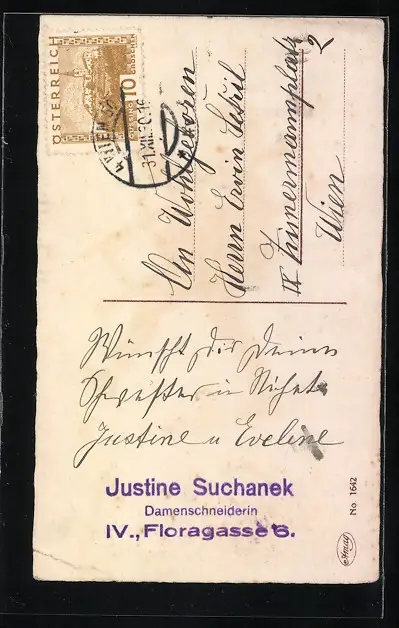 ÖSTERREICH
10
GROSCHEN
WIEN
31.XII.30
An Wohlgeboren
Herrn Ervin
IX Zimmermannplatz
Wien
Wünscht Dir Deine
Schwester u Nichte
Justine u Eveline
Justine Suchanek
Damenschneiderin
IV., Floragasse 6.
No 1642
Amag